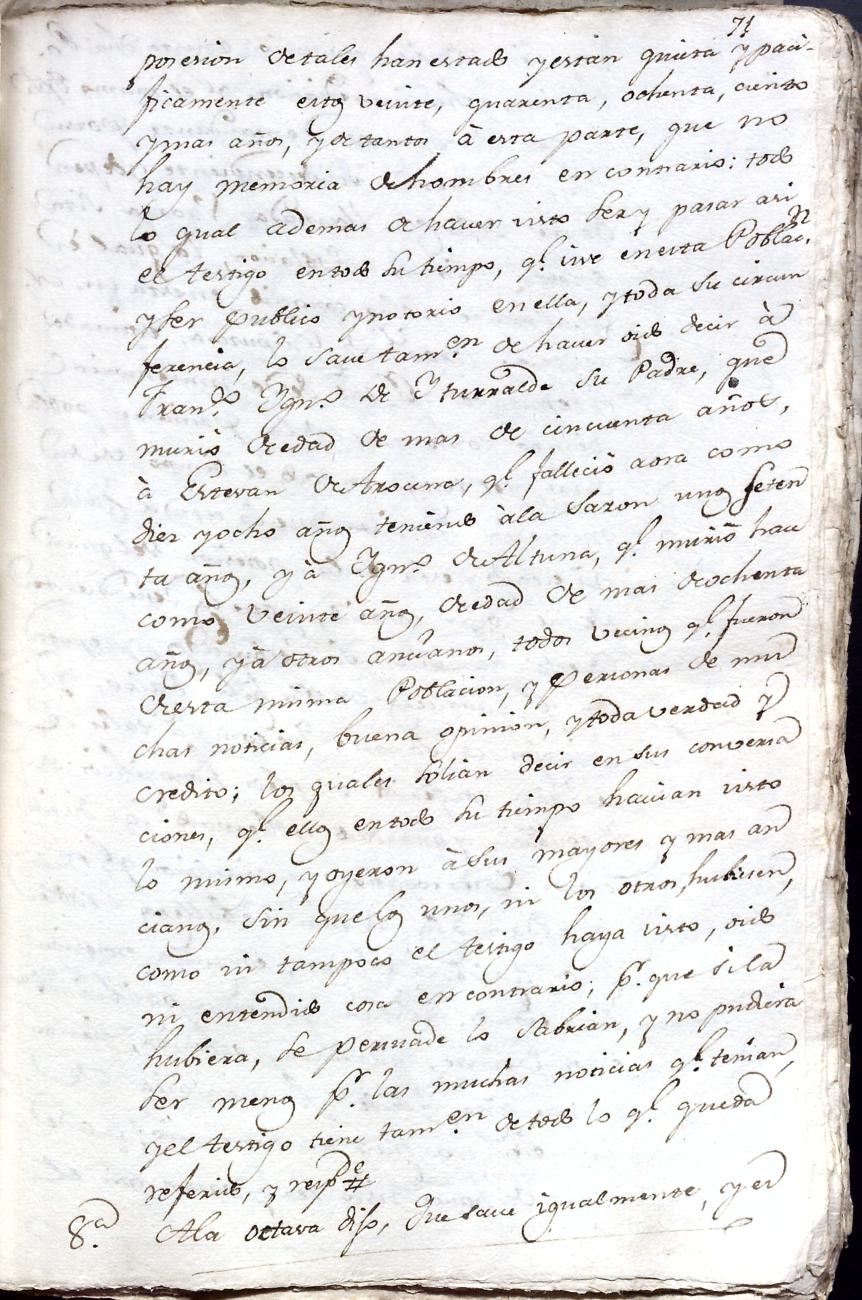 71
posesion de tales han estado y están quieta y paci-
ficamente estos veinte, quarenta, ochenta, ciento
y mas años, y de tantos à esta parte, que no
hay memoria de hombres en contrario: todo
lo qual ademas de haver visto ser y pasar asi
el testigo en todo su tiempo, q.e vive en esta Poblac.on
y ser publico y notorio en ella, y toda su circun
ferencia, lo save tam.en de haver oido decir à
Fran.co Ygn.o de Yturralde su Padre, que
murió de edad de mas de cincuenta años,
à Estevan de Arocena, q.e falleciò aora como
diez y ocho años teniendo à la sazon unos seten
ta años, y à Ygn.o de Altuna, q.e murió hace
como veinte años, de edad de mas de ochenta
años, y à otros ancianos, todos vecinos q.e fueron
de esta misma Poblacion, y Personas de mu
chas noticias, buena opinion, y toda verdad y
credito; los quales solian decir en sus conversa
ciones, q.e ellos en todo su tiempo havian visto
lo mismo, y oyeron à sus mayores y mas an
cianos, sin que los unos, ni los otros, hubiesen,
como ni tampoco el testigo haya visto, oido
ni entendido cosa en contrario; p.r que si la
hubiera, se persuade lo sabrian, y no pudiera
ser menos p.r las muchas noticias q.e tenian,
y el testigo tiene tam.en de todo lo q.e queda
referido, y resp.de
8.a A la octava dijo, Que save igualmente, y es